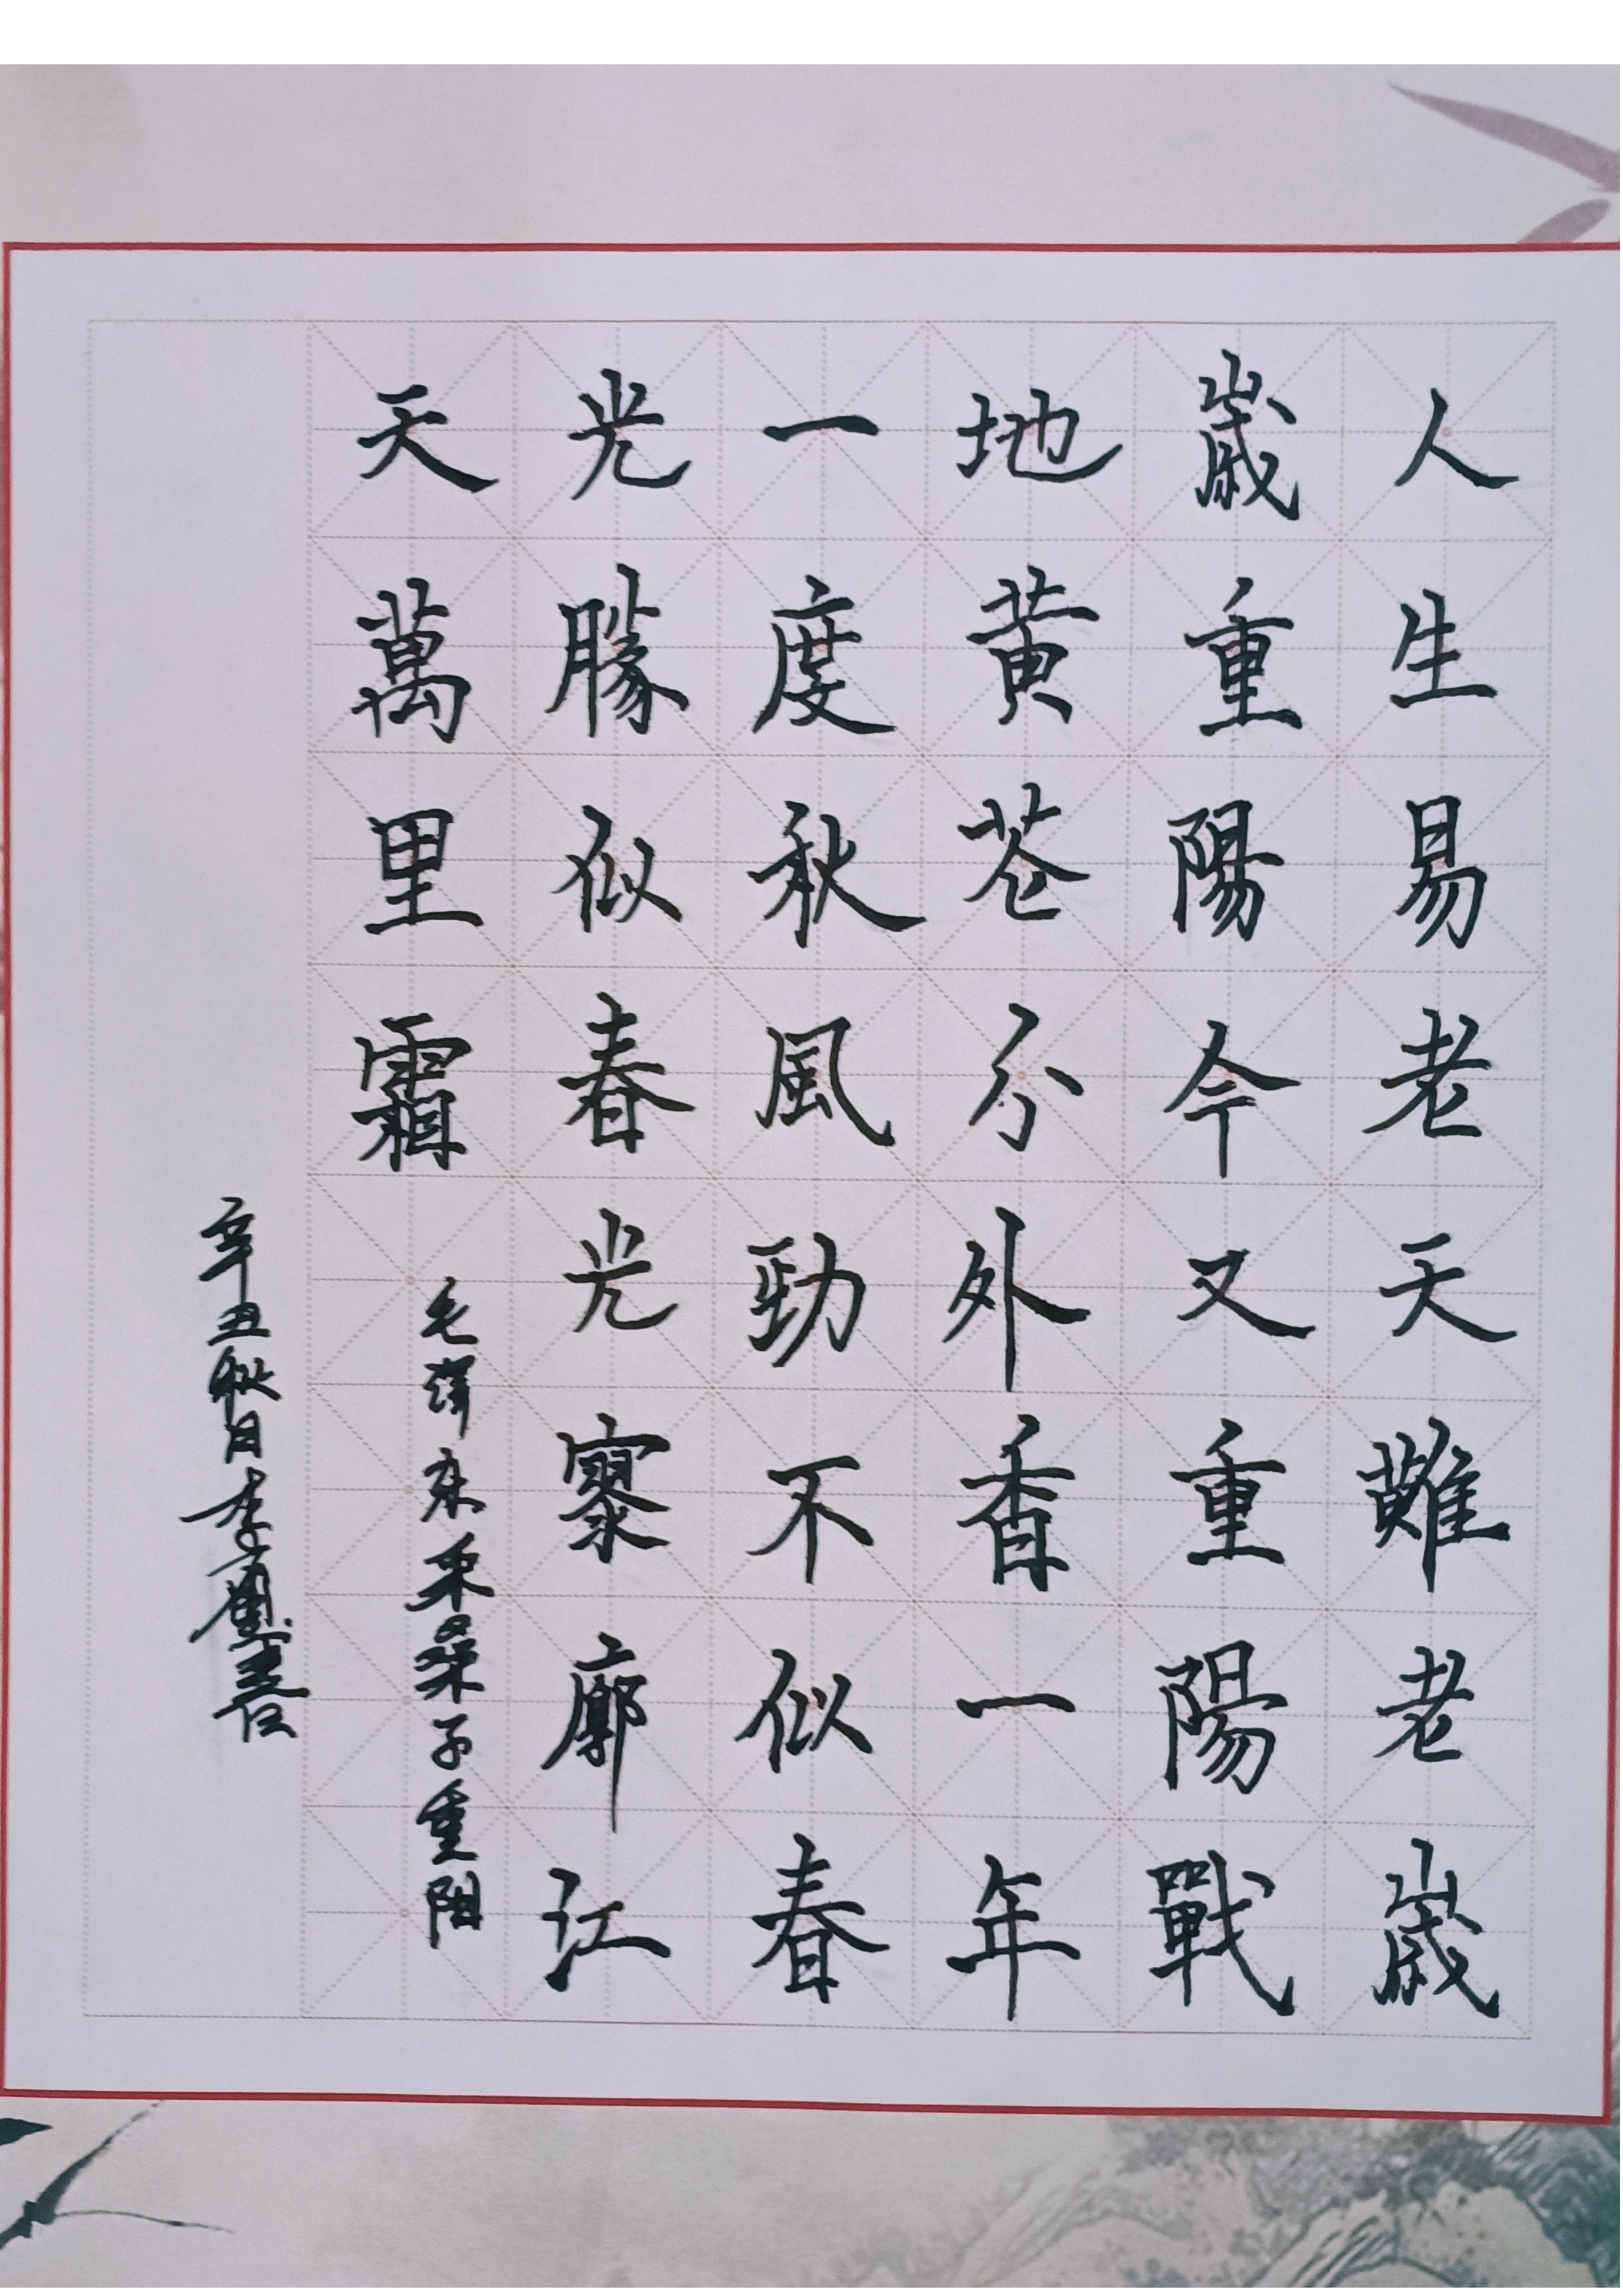 人生易老天難老歲
歲重陽今又重陽戰
地黄花分外香一年
一度秋風勁不似春
光勝似春光寥廓江
天萬里霜
毛澤东采桑子重阳
辛丑秋日李